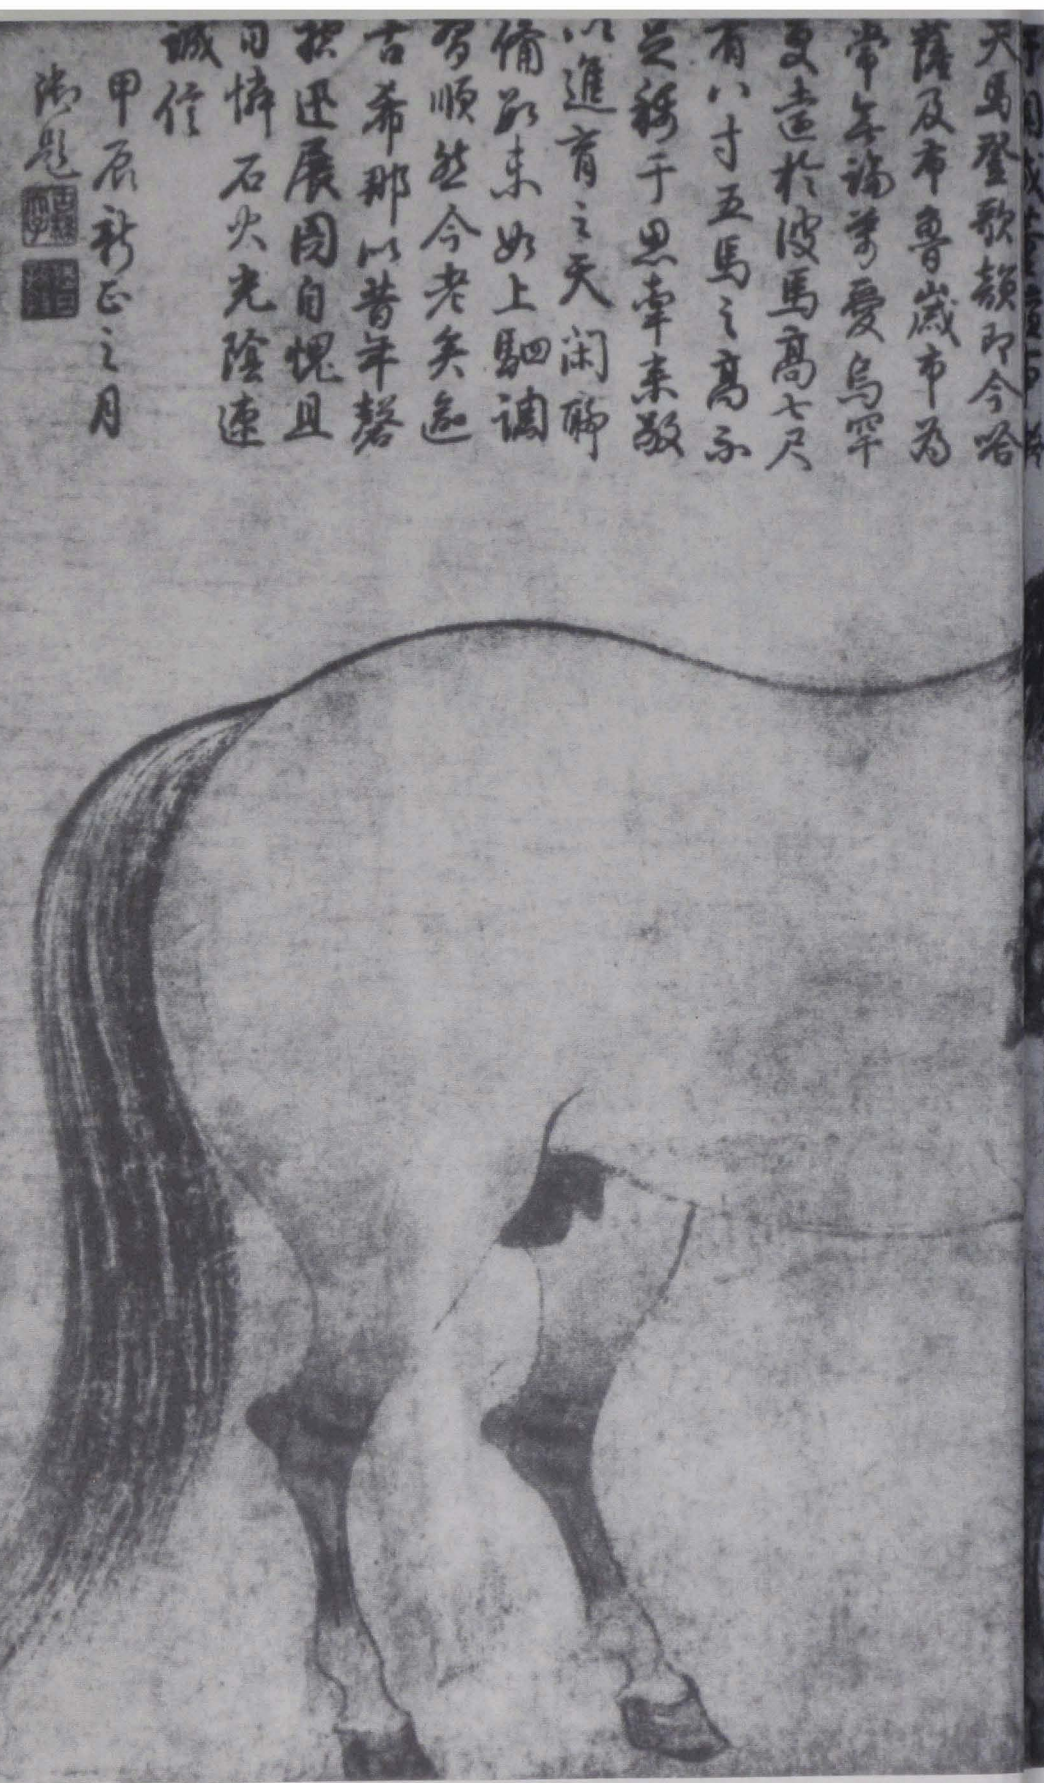 天馬登歌韻即今哈
薩及布魯歲市為
常無論等愛烏罕
更遠於彼馬高七尺
有八寸五馬之高不
足稱于思牽來敬
以進育之天閑聊
備數未如上駟調
習順然今老矣逾
古希那以昔年磬
控迅展圖自愧且
自憐石火光陰速
誠信
甲辰新正之月
御題